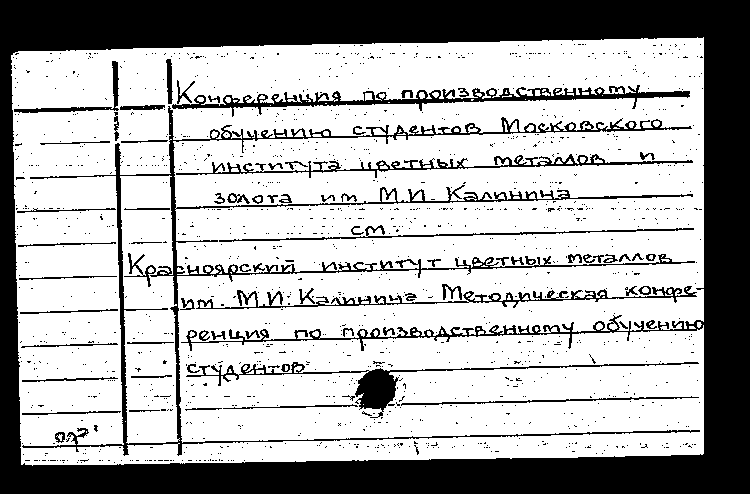 Конференция по производственному
обучению студентов Московского
института цветных металлов и
золота им. М.И. Калинина
см.
Красноярский институт цветных металлов
им. М.И. Калинина. Методическая конфе-
ренция по производственному обучению
студентов